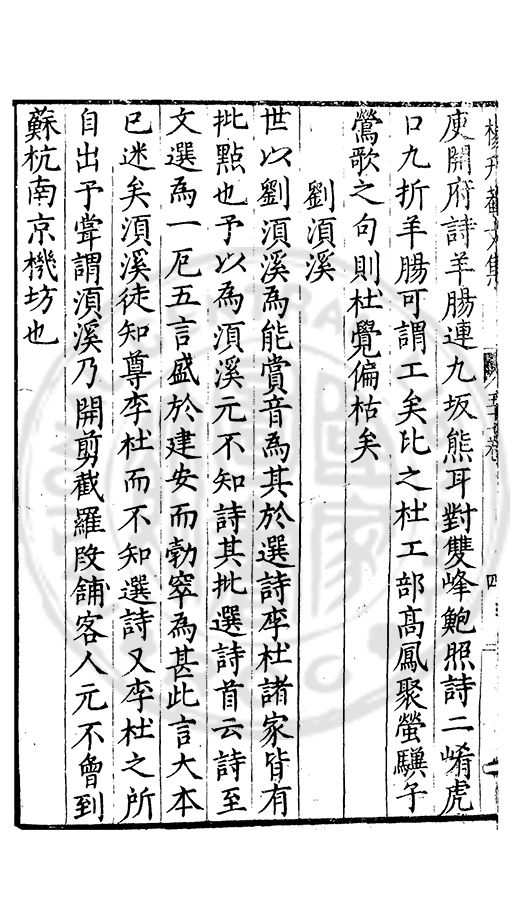 庾開府詩羊腸連九坂熊耳對雙峰鮑照詩二崤虎
口九折羊腸可謂工矣比之杜工部高鳳聚螢驥子
鶯歌之句則杜覺偏枯矣
劉須溪
世以劉須溪為能賞音為其於選詩李杜諸家皆有
批點也予以為須溪元不知詩其批選詩首云詩至
文選為一厄五言盛於建安而勃窣為甚此言大本
已迷矣須溪徒知尊李杜而不知選詩又李杜之所
自出予嘗謂須溪乃開剪截羅段鋪客人元不曾到
蘇杭南京機坊也